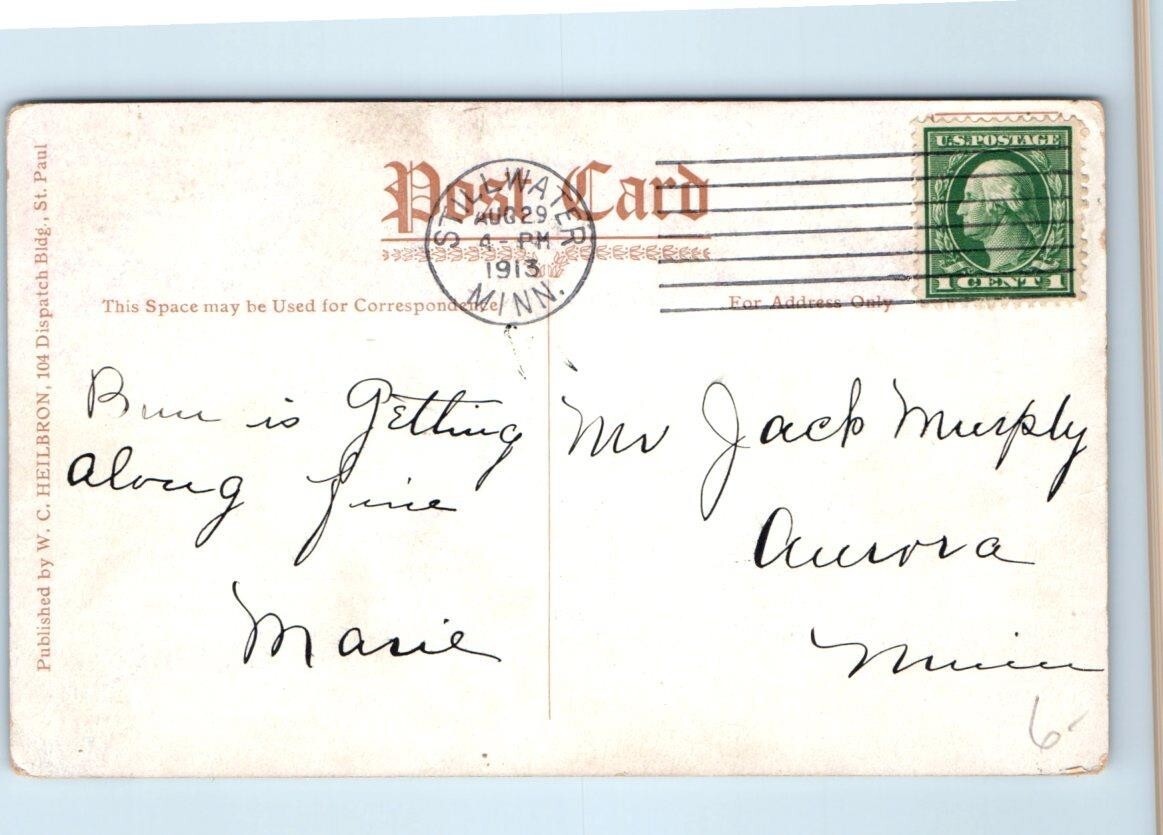 Post Card
STILLWATER
AUG 29
4-PM
1913
MINN.
U.S. POSTAGE
1 CENT 1
This Space may be Used for Correspondence
For Address Only
Published by W. C. HEILBRON, 104 Dispatch Bldg., St. Paul
is Getting
along fine
Marie
Mr Jack Murphy
Aurora
Minn
6